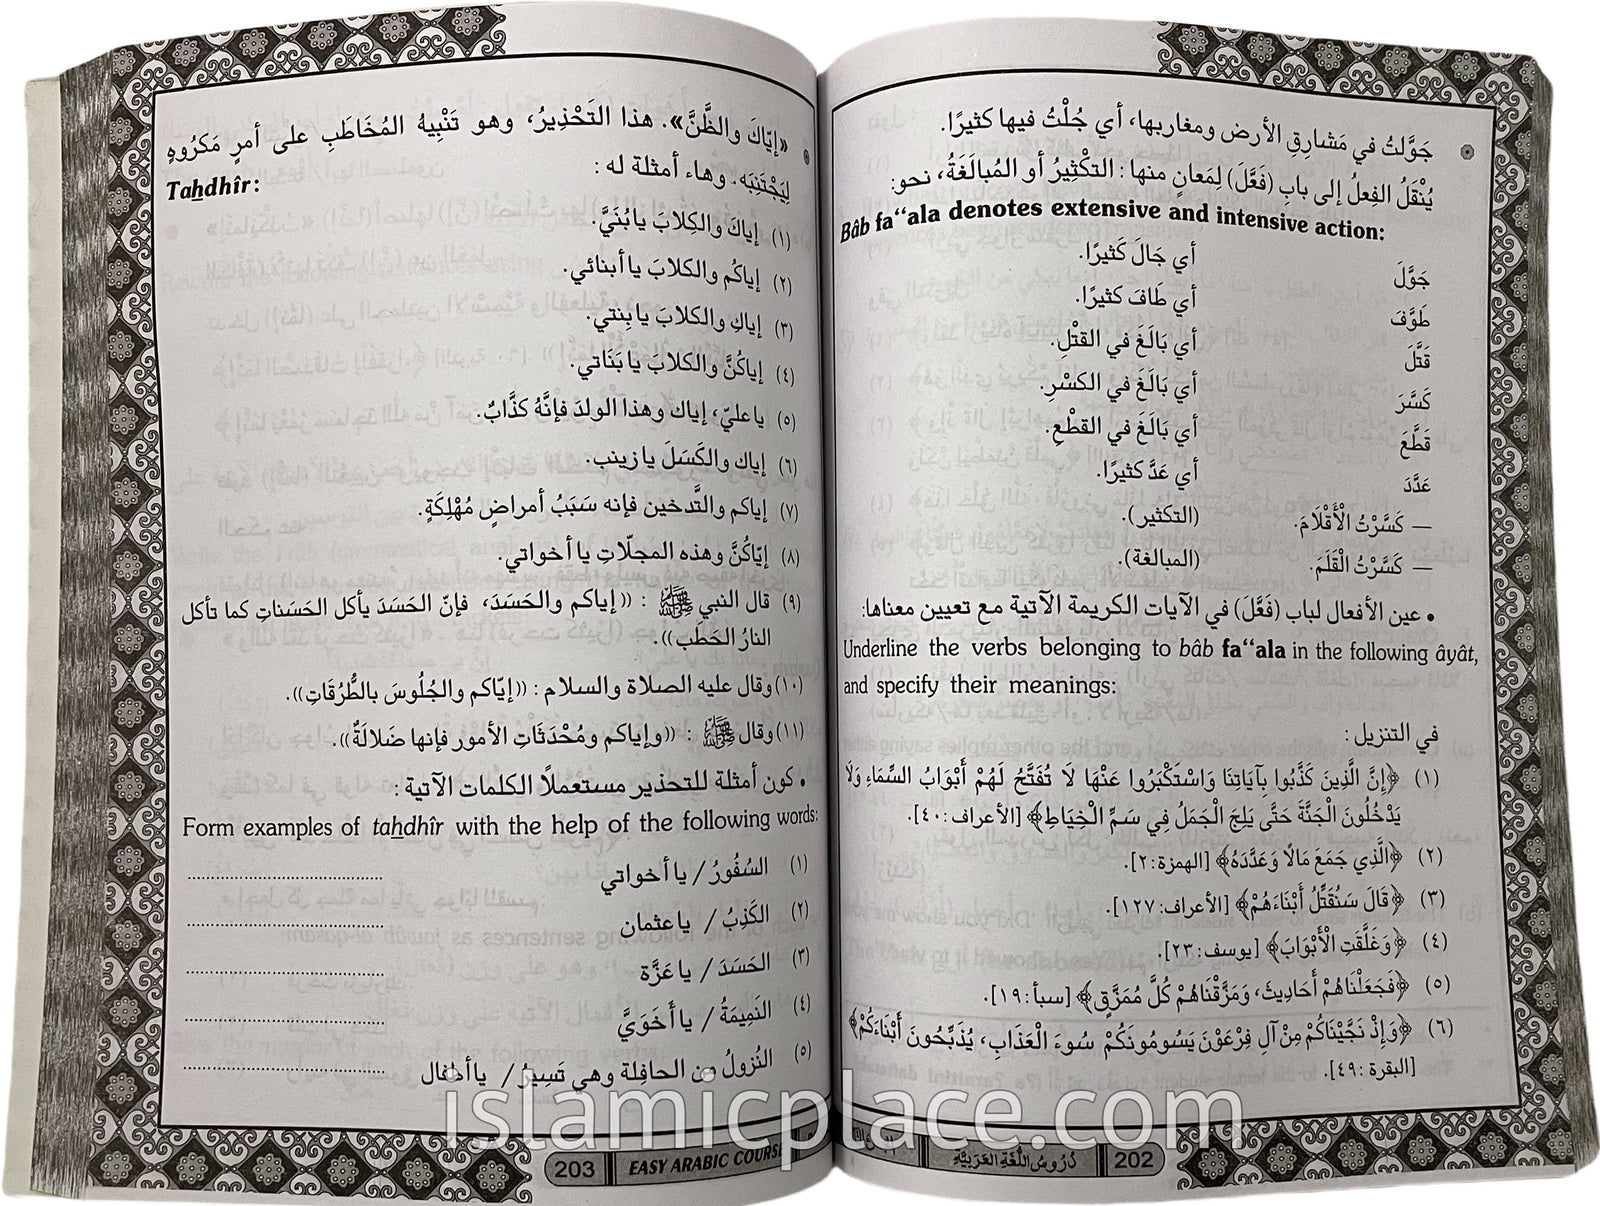 جَوَّلتُ في مَشارِقِ الأرض ومغاربها، أي جُلْتُ فيها كثيرًا.
يُنْقَلُ الفِعلُ إلى بابِ (فَعَّلَ) لِمَعانٍ منها: التكْثِيرُ أو المُبالَغَةُ، نحو:
Bâb fa‘‘ala denotes extensive and intensive action:
جَوَّلَ أي جَالَ كَثيرًا.
طَوَّفَ أي طَافَ كثيرًا.
قَتَّلَ أي بَالَغَ في القتْلِ.
كَسَّرَ أي بَالَغَ في الكسْرِ.
قَطَّعَ أي بَالَغَ في القطْعِ.
عَدَّدَ أي عَدَّ كثيرًا.
— كَسَّرْتُ الْأَقْلَامَ. (التكثير).
— كَسَّرْتُ الْقَلَمَ. (المبالغة).
• عين الأفعال لباب (فَعَّلَ) في الآيات الكريمة الآتية مع تعيين معناها:
Underline the verbs belonging to bâb fa‘‘ala in the following âyât,
and specify their meanings:
في التنزيل :
(١) ﴿إِنَّ الَّذِينَ كَذَّبُوا بِآيَاتِنَا وَاسْتَكْبَرُوا عَنْهَا لَا تُفَتَّحُ لَهُمْ أَبْوَابُ السَّمَاءِ وَلَا
يَدْخُلُونَ الْجَنَّةَ حَتَّى يَلِجَ الْجَمَلُ فِي سَمِّ الْخِيَاطِ﴾ [الأعراف: ٤٠].
(٢) ﴿الَّذِي جَمَعَ مَالًا وَعَدَّدَهُ﴾ [الهمزة: ٢].
(٣) ﴿قَالَ سَنُقَتِّلُ أَبْنَاءَهُمْ﴾ [الأعراف: ١٢٧].
(٤) ﴿وَغَلَّقَتِ الْأَبْوَابَ﴾ [يوسف: ٢٣].
(٥) ﴿فَجَعَلْنَاهُمْ أَحَادِيثَ، وَمَزَّقْنَاهُمْ كُلَّ مُمَزَّقٍ﴾ [سبأ: ١٩].
(٦) ﴿وَإِذْ نَجَّيْنَاكُمْ مِنْ آلِ فِرْعَوْنَ يَسُومُونَكُمْ سُوءَ الْعَذَابِ، يُذَبِّحُونَ أَبْنَاءَكُمْ﴾
[البقرة: ٤٩].
202 دُرُوسُ اللُّغَةِ العَرَبِيَّةِ
«إيّاكَ والظَّنَّ». هذا التَحْذِيرُ، وهو تَنْبِيهُ المُخَاطَبِ على أمرٍ مَكرُوهٍ
لِيَجْتَنِبَه. وهاء أمثلة له :
Tahdhîr:
(١) إياكَ والكِلابَ يا بُنَيَّ.
(٢) إياكُم والكلابَ يا أبنائي.
(٣) إياكِ والكلابَ يا بِنتي.
(٤) إياكُنَّ والكلابَ يا بَنَاتي.
(٥) يا عليّ، إياك وهذا الولدَ فإنَّهُ كذَّابٌ.
(٦) إياك والكَسَلَ يا زينب.
(٧) إياكم والتَّدخين فإنه سَبَبُ أمراضٍ مُهْلِكَةٍ.
(٨) إيّاكُنَّ وهذه المجلّات يا أخواتي.
(٩) قال النبي ﷺ : ((إياكم والحَسَدَ، فإنّ الحَسَدَ يأكل الحَسَناتِ كما تأكل
النارُ الحَطَبَ)).
(١٠) وقال عليه الصلاة والسلام : ((إيّاكم والجُلُوسَ بالطُّرُقَاتِ)).
(١١) وقال ﷺ : ((وإياكم ومُحْدَثَاتِ الأمور فإنها ضَلالَةٌ)).
• كون أمثلة للتحذير مستعملاً الكلمات الآتية :
Form examples of tahdhîr with the help of the following words:
(١) السُفُورُ / يا أخواتي ..............................
(٢) الكَذِبُ / يا عثمان ..............................
(٣) الحَسَدَ / يا عَزَّة ..............................
(٤) النَمِيمَةُ / يا أَخَوَيَّ ..............................
(٥) النُزولُ من الحافِلة وهي تَسِيرُ / يا أطفال ..............................
203 EASY ARABIC COURSE
islamicplace.com